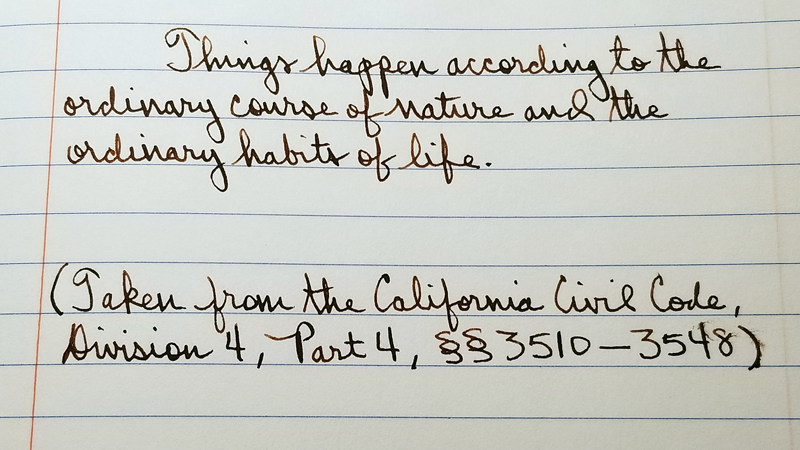 Things happen according to the
ordinary course of nature and the
ordinary habits of life.
(Taken from the California Civil Code,
Division 4, Part 4, §§ 3510 – 3548)